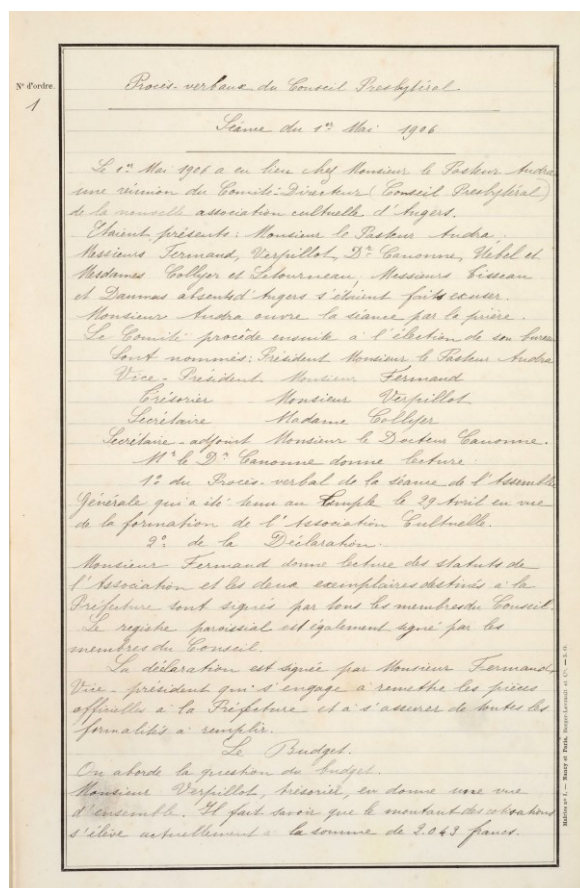 N° d'ordre.
1
Procès-verbaux du Conseil Presbytéral.
Séance du 1er Mai 1906
Le 1er Mai 1906 a eu lieu chez Monsieur le Pasteur Andra
une réunion du Comité-Directeur (Conseil Presbytéral)
de la nouvelle association cultuelle d'Angers.
Etaient présents: Monsieur le Pasteur Andra.
Messieurs Fermaud, Verpillot, Dr Canonne, Hebel et
Mesdames Collyer et Letourneau, Messieurs Cisseau
et Daumas absents d'Angers s'étaient faits excuser.
Monsieur Andra ouvre la séance par la prière.
Le Comité procède ensuite à l'élection de son bureau
Sont nommés: Président Monsieur le Pasteur Andra
Vice-Président Monsieur Fermaud
Trésorier Monsieur Verpillot
Secrétaire Madame Collyer
Secrétaire-adjoint Monsieur le Docteur Canonne.
Mr le Dr Canonne donne lecture:
1° du Procès-verbal de la séance de l'Assemblée
Générale qui a été tenu au temple le 29 Avril en vue
de la formation de l'Association Cultuelle.
2° de la Déclaration.
Monsieur Fermaud donne lecture des statuts de
l'Association et les deux exemplaires destinés à la
Préfecture sont signés par tous les membres du Conseil.
Le registre paroissial est également signé par les
membres du Conseil.
La déclaration est signée par Monsieur Fermaud
Vice-président qui s'engage à remettre les pièces
officielles à la Préfecture et à s'assurer de toutes les
formalités à remplir.
Le Budget.
On aborde la question du budget.
Monsieur Verpillot, trésorier, en donne une vue
d'ensemble. Il fait savoir que le montant des cotisations
s'élève actuellement à la somme de 2.043 francs.
Nancy et Paris, Berger-Levrault et Cie